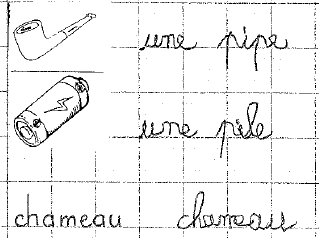 une pipe
une pile
chameau chameau